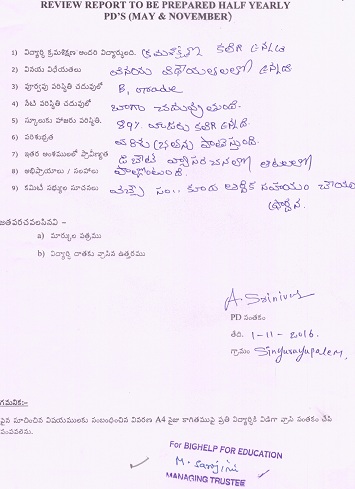 REVIEW REPORT TO BE PREPARED HALF YEARLY
PD'S (MAY & NOVEMBER)
1) విద్యార్థి క్రమశిక్షణ అందరి విద్యార్థులది. కలిగి ఉన్నది
2) వినయ విధేయతలు ఉన్నది
3) పూర్వపు పరిస్థితి చదువులో B, Grade
4) నేటి పరిస్థితి చదువులో బాగా చదువుచున్నది.
5) స్కూలుకు హాజరు పరిస్థితి. 89% హాజరు కలిగి ఉన్నది.
6) పరిశుభ్రత
7) ఇతర అంశములలో ప్రావీణ్యత
8) అభిప్రాయాలు / సలహాలు పాల్గొంటుంది.
9) కమిటీ సభ్యుల సూచనలు ఆర్థిక సహాయం
జతపరచవలసినవి –
a) మార్కుల పత్రము
b) విద్యార్థి దాతకు వ్రాసిన ఉత్తరము
A. Srinivas
PD సంతకం
తేది. 1-11-2016.
గ్రామం Singarayapalem,
గమనిక:–
పైన సూచించిన విషయములకు సంబంధించిన వివరణ A4 సైజు కాగితముపై ప్రతి విద్యార్థికి విడిగా వ్రాసి సంతకం చేసి
పంపవలెను.
For BIGHELP FOR EDUCATION
M. Sarojini
MANAGING TRUSTEE